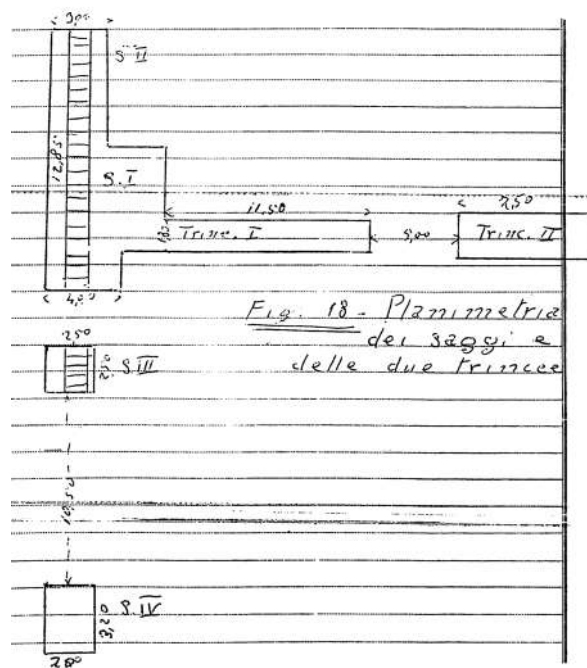 3,00
S II
12,85
S. I
11,50
7,50
1,80
Trinc. I
5,00
Trinc. II
4,00
Fig. 18 - Planimetria
dei saggi e
delle due trincee
250
S. III
2,50
10,50
S. IV
3,20
280